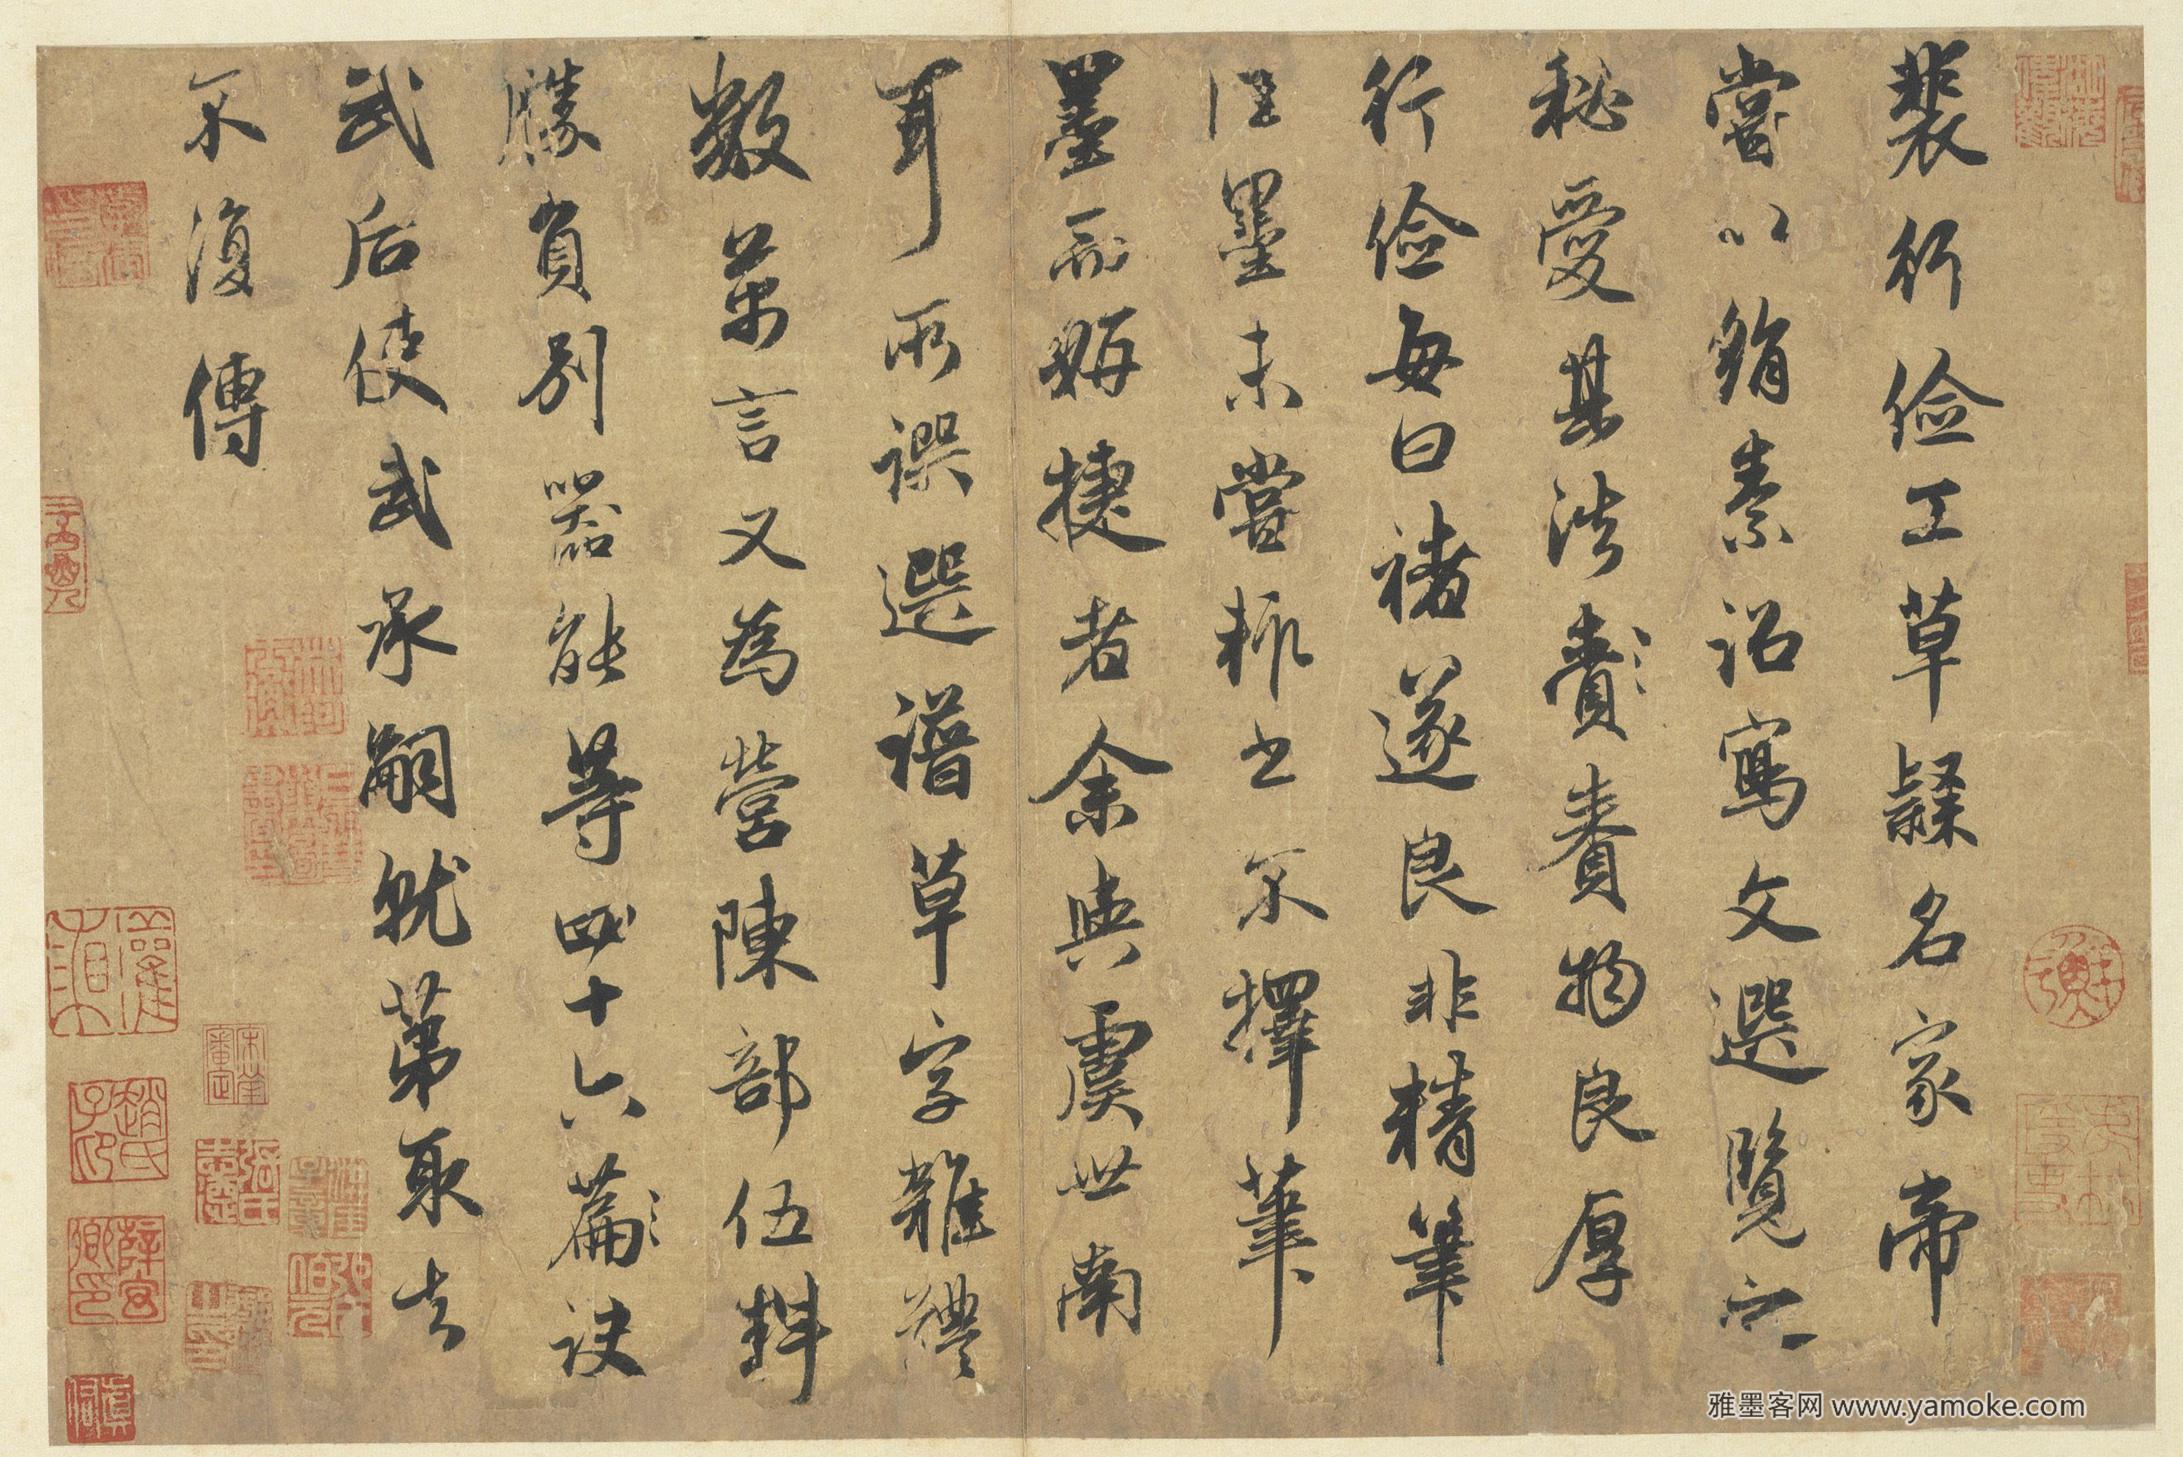 裴行儉工草隷名家帝
嘗以絹素詔寫文選覽之
秘愛其法賷賚物良厚
行儉每曰褚遂良非精筆
佳墨未嘗輒書不擇筆
墨而妍捷者余與虞世南
耳所譔選譜草字雜體
數萬言又為營陳部伍料
勝負別器能等四十六篇訣
武后使武承嗣就第取去
不復傳
雅墨客网 www.yamoke.com